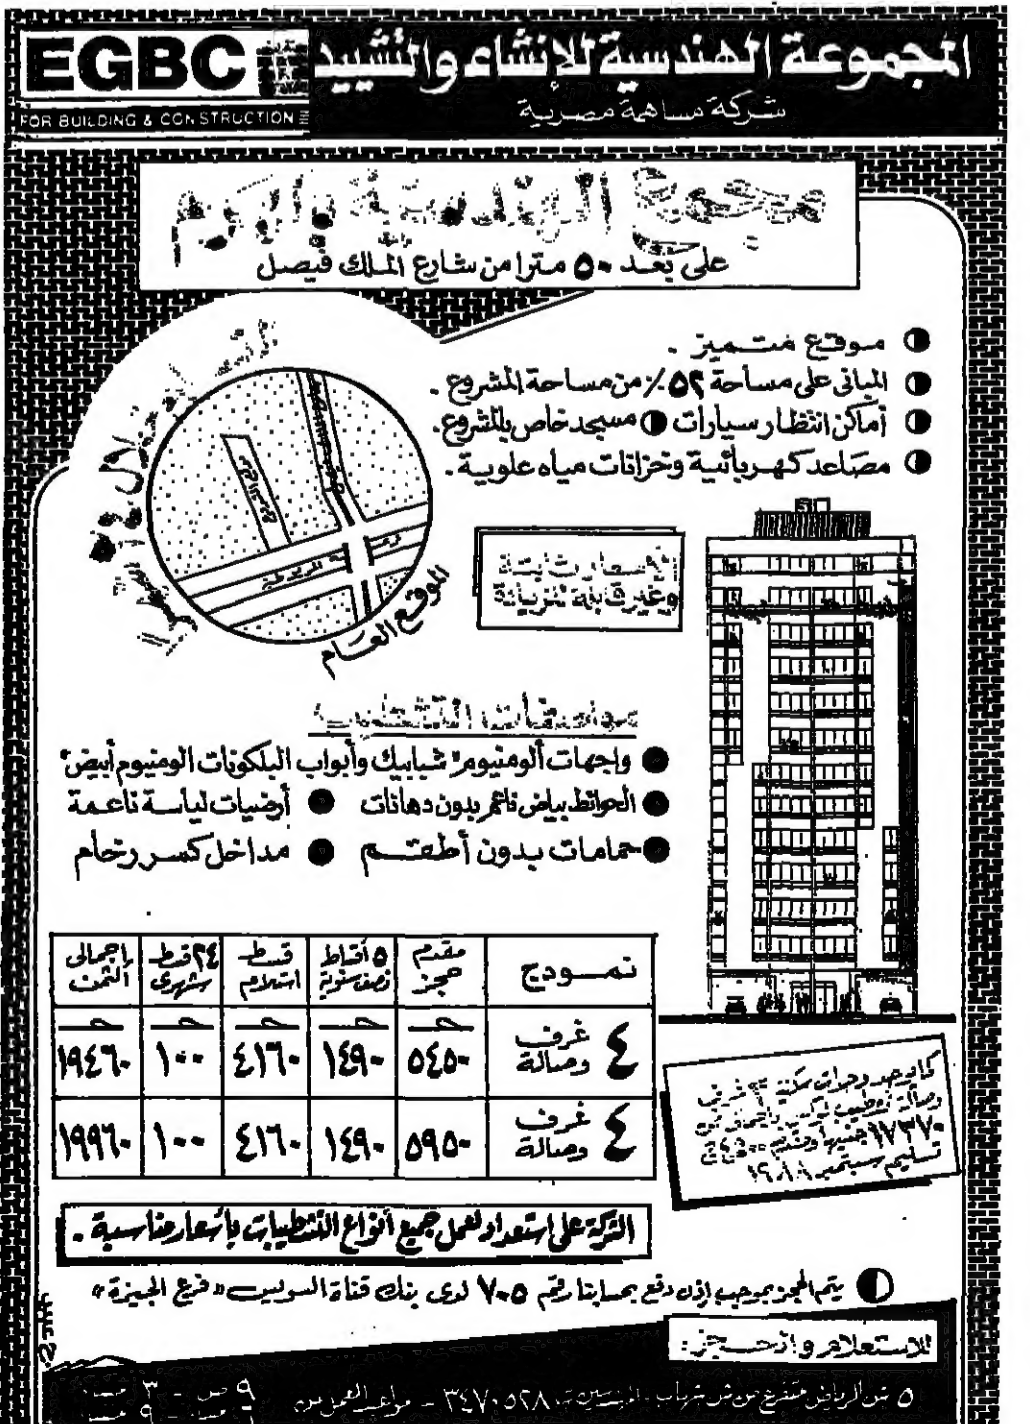 المجموعة الهندسية للإنشاء والتشييد
EGBC
شركة مساهمة مصرية
FOR BUILDING & CONSTRUCTION
مجمع الهندسية بالهرم
على بعد ٥٠ مترا من شارع الملك فيصل
موقع متميز .
المبانى على مساحة ٥٢٪ من مساحة المشروع .
أماكن انتظار سيارات مسجد خاص بالمشروع .
مصاعد كهربائية وخزانات مياه علوية .
الأسعار ثابتة
وغير قابلة للزيادة
الموقع العام
مواصفات التشطيب
واجهات ألومنيوم " شبابيك وأبواب البلكونات الومنيوم أبيض "
الحوائط بياض ناعم بدون دهانات
أرضيات لياسة ناعمة
حمامات بدون أطقم
مداخل كسر رخام
نموذج
مقدم حجز
٥ أقساط نصف سنوية
قسط استلام
٢٤ قسط شهرى
إجمالى الثمن
٤ غرف وصالة
٥٤٥٠ ١٤٩٠ ٤١٦٠ ١٠٠ ١٩٤٦٠
٤ غرف وصالة
٥٩٥٠ ١٤٩٠ ٤١٦٠ ١٠٠ ١٩٩٦٠
كما يوجد وحدات سكنية ٣ غرف
١٧٣٧٠ جنيها
تسليم سبتمبر ١٩٨٨
الشركة على استعداد لعمل جميع أنواع التشطيبات بأسعار مناسبة .
يتم الحجز بموجب إذن دفع بحسابنا رقم ٧٠٥ لدى بنك قناة السويس « فرع الجيزة »
للاستعلام والحجز :
٥ ش الرياض متفرع من ش شهاب - المهندسين ت ٣٤٧٠٥٢٨ - مواعيد العمل من
٩ ص - ٣ مساء